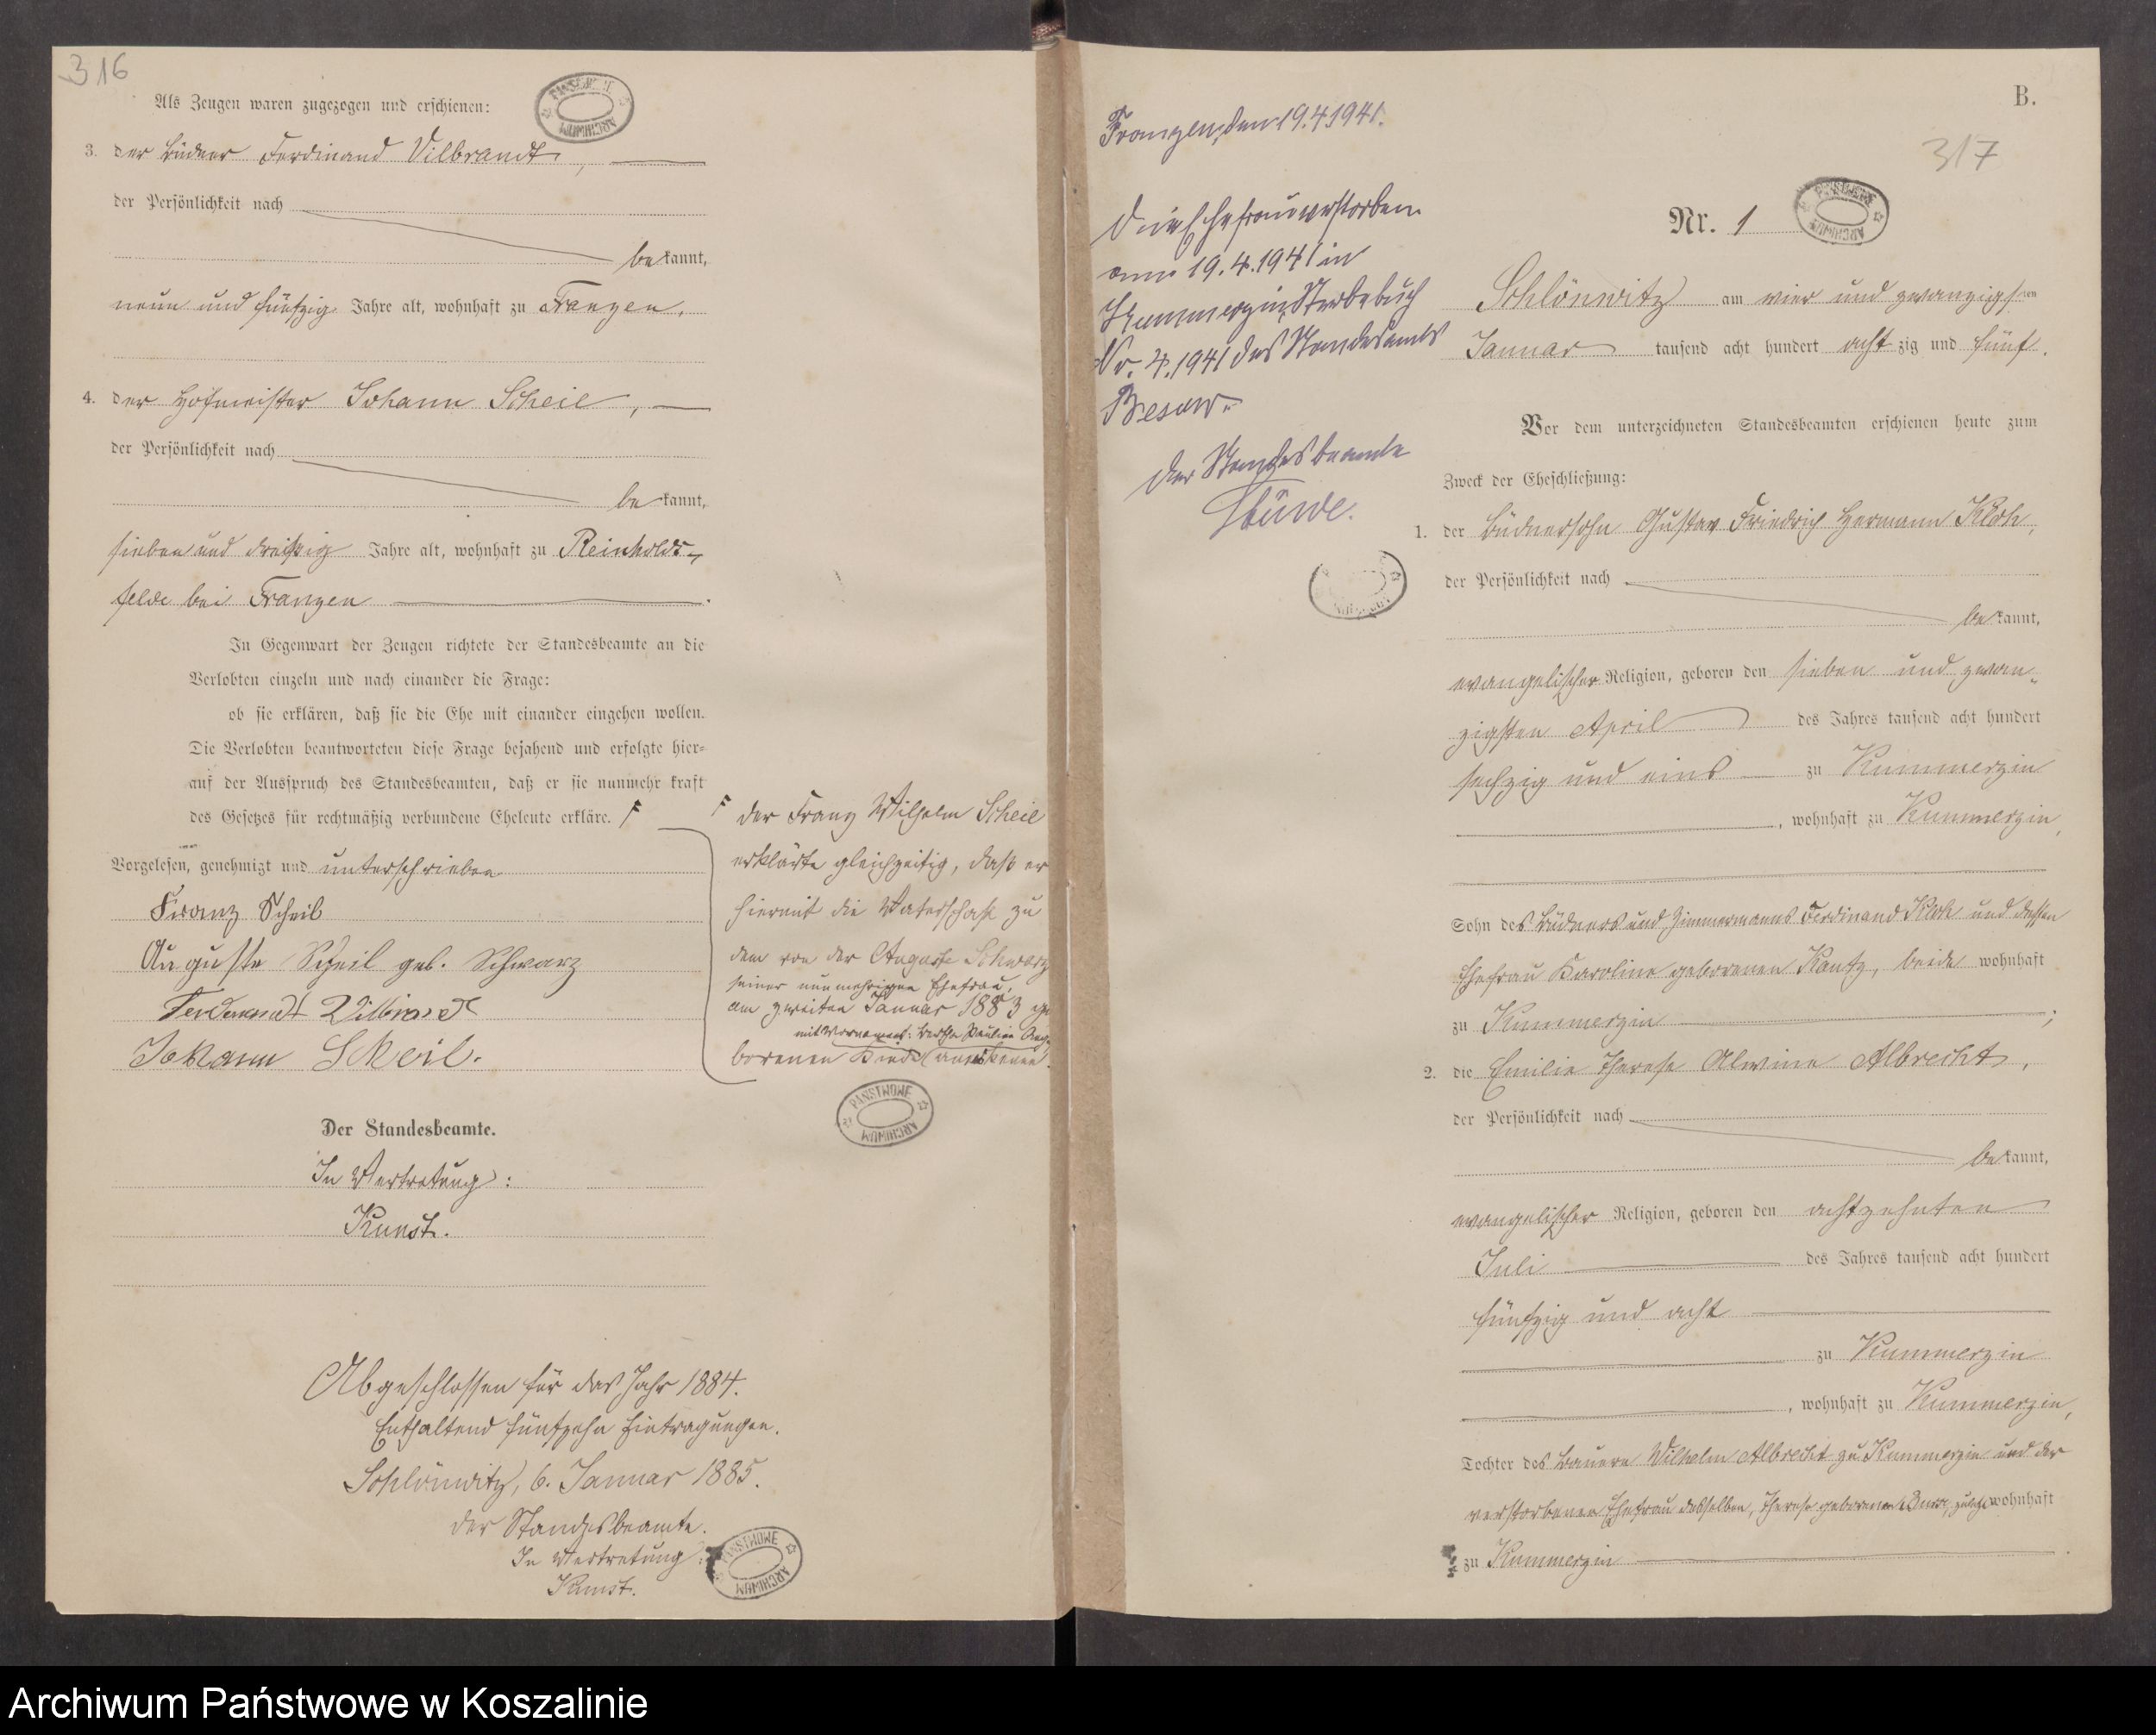 316
Als Zeugen waren zugezogen und erschienen:
PAŃSTWOWE ARCHIWUM
3. der Büdner Ferdinand Vilbrandt,
der Persönlichkeit nach
bekannt,
neun und fünfzig Jahre alt, wohnhaft zu Franzen.
4. der Hofmeister Johann Scheil,
der Persönlichkeit nach
bekannt,
sieben und dreißig Jahre alt, wohnhaft zu Reinholds-
felde bei Franzen.
In Gegenwart der Zeugen richtete der Standesbeamte an die
Verlobten einzeln und nach einander die Frage:
ob sie erklären, daß sie die Ehe mit einander eingehen wollen.
Die Verlobten beantworteten diese Frage bejahend und erfolgte hier-
auf der Ausspruch des Standesbeamten, daß er sie nunmehr kraft
des Gesetzes für rechtmäßig verbundene Eheleute erkläre.
Vorgelesen, genehmigt und unterschrieben
Franz Scheil
Auguste Scheil geb. Schwarz
Ferdinandt Vilbrandt
Johann Scheil.
Der Standesbeamte.
In Vertretung:
Kunst.
der Franz Wilhelm Scheil
erklärte gleichzeitig, daß er
hiermit die Vaterschaft zu
dem von der Auguste Schwarz
seiner nunmehrigen Ehefrau,
am zweiten Januar 1883 ge
mit Vornamen: Bertha Pauline
borenen Kinde anerkenne.
PAŃSTWOWE ARCHIWUM
Abgeschlossen für das Jahr 1884.
Enthaltend fünfzehn Eintragungen.
Schlönwitz, 6. Januar 1885.
Der Standesbeamte.
In Vertretung:
Kunst.
PAŃSTWOWE ARCHIWUM
Franzen, den 19.4.1941.
Die Ehefrau verstorben
am 19.4.1941 in
Kummerzin, Sterbebuch
Nr. 4.1941 des Standesamts
Besow.
Der Standesbeamte
Stüwe.
B.
317
PAŃSTWOWE ARCHIWUM
Nr. 1
Schlönwitz am vier und zwanzigsten
Januar tausend acht hundert achtzig und fünf.
Vor dem unterzeichneten Standesbeamten erschienen heute zum
Zweck der Eheschließung:
1. der Büdnersohn Gustav Friedrich Hermann Kloh,
der Persönlichkeit nach
bekannt,
evangelischer Religion, geboren den sieben und zwan-
zigsten April des Jahres tausend acht hundert
sechzig und eins zu Kummerzin
, wohnhaft zu Kummerzin,
Sohn des Büdners und Zimmermanns Ferdinand Kloh und dessen
Ehefrau Karoline geborenen Kautz, beide wohnhaft
zu Kummerzin;
2. die Emilie Therese Alwine Albrecht,
der Persönlichkeit nach
bekannt,
evangelischer Religion, geboren den achtzehnten
Juli des Jahres tausend acht hundert
fünfzig und acht
zu Kummerzin
, wohnhaft zu Kummerzin,
Tochter des Bauern Wilhelm Albrecht zu Kummerzin und der
verstorbenen Ehefrau desselben, Therese geborenen zuletzt wohnhaft
zu Kummerzin
Archiwum Państwowe w Koszalinie